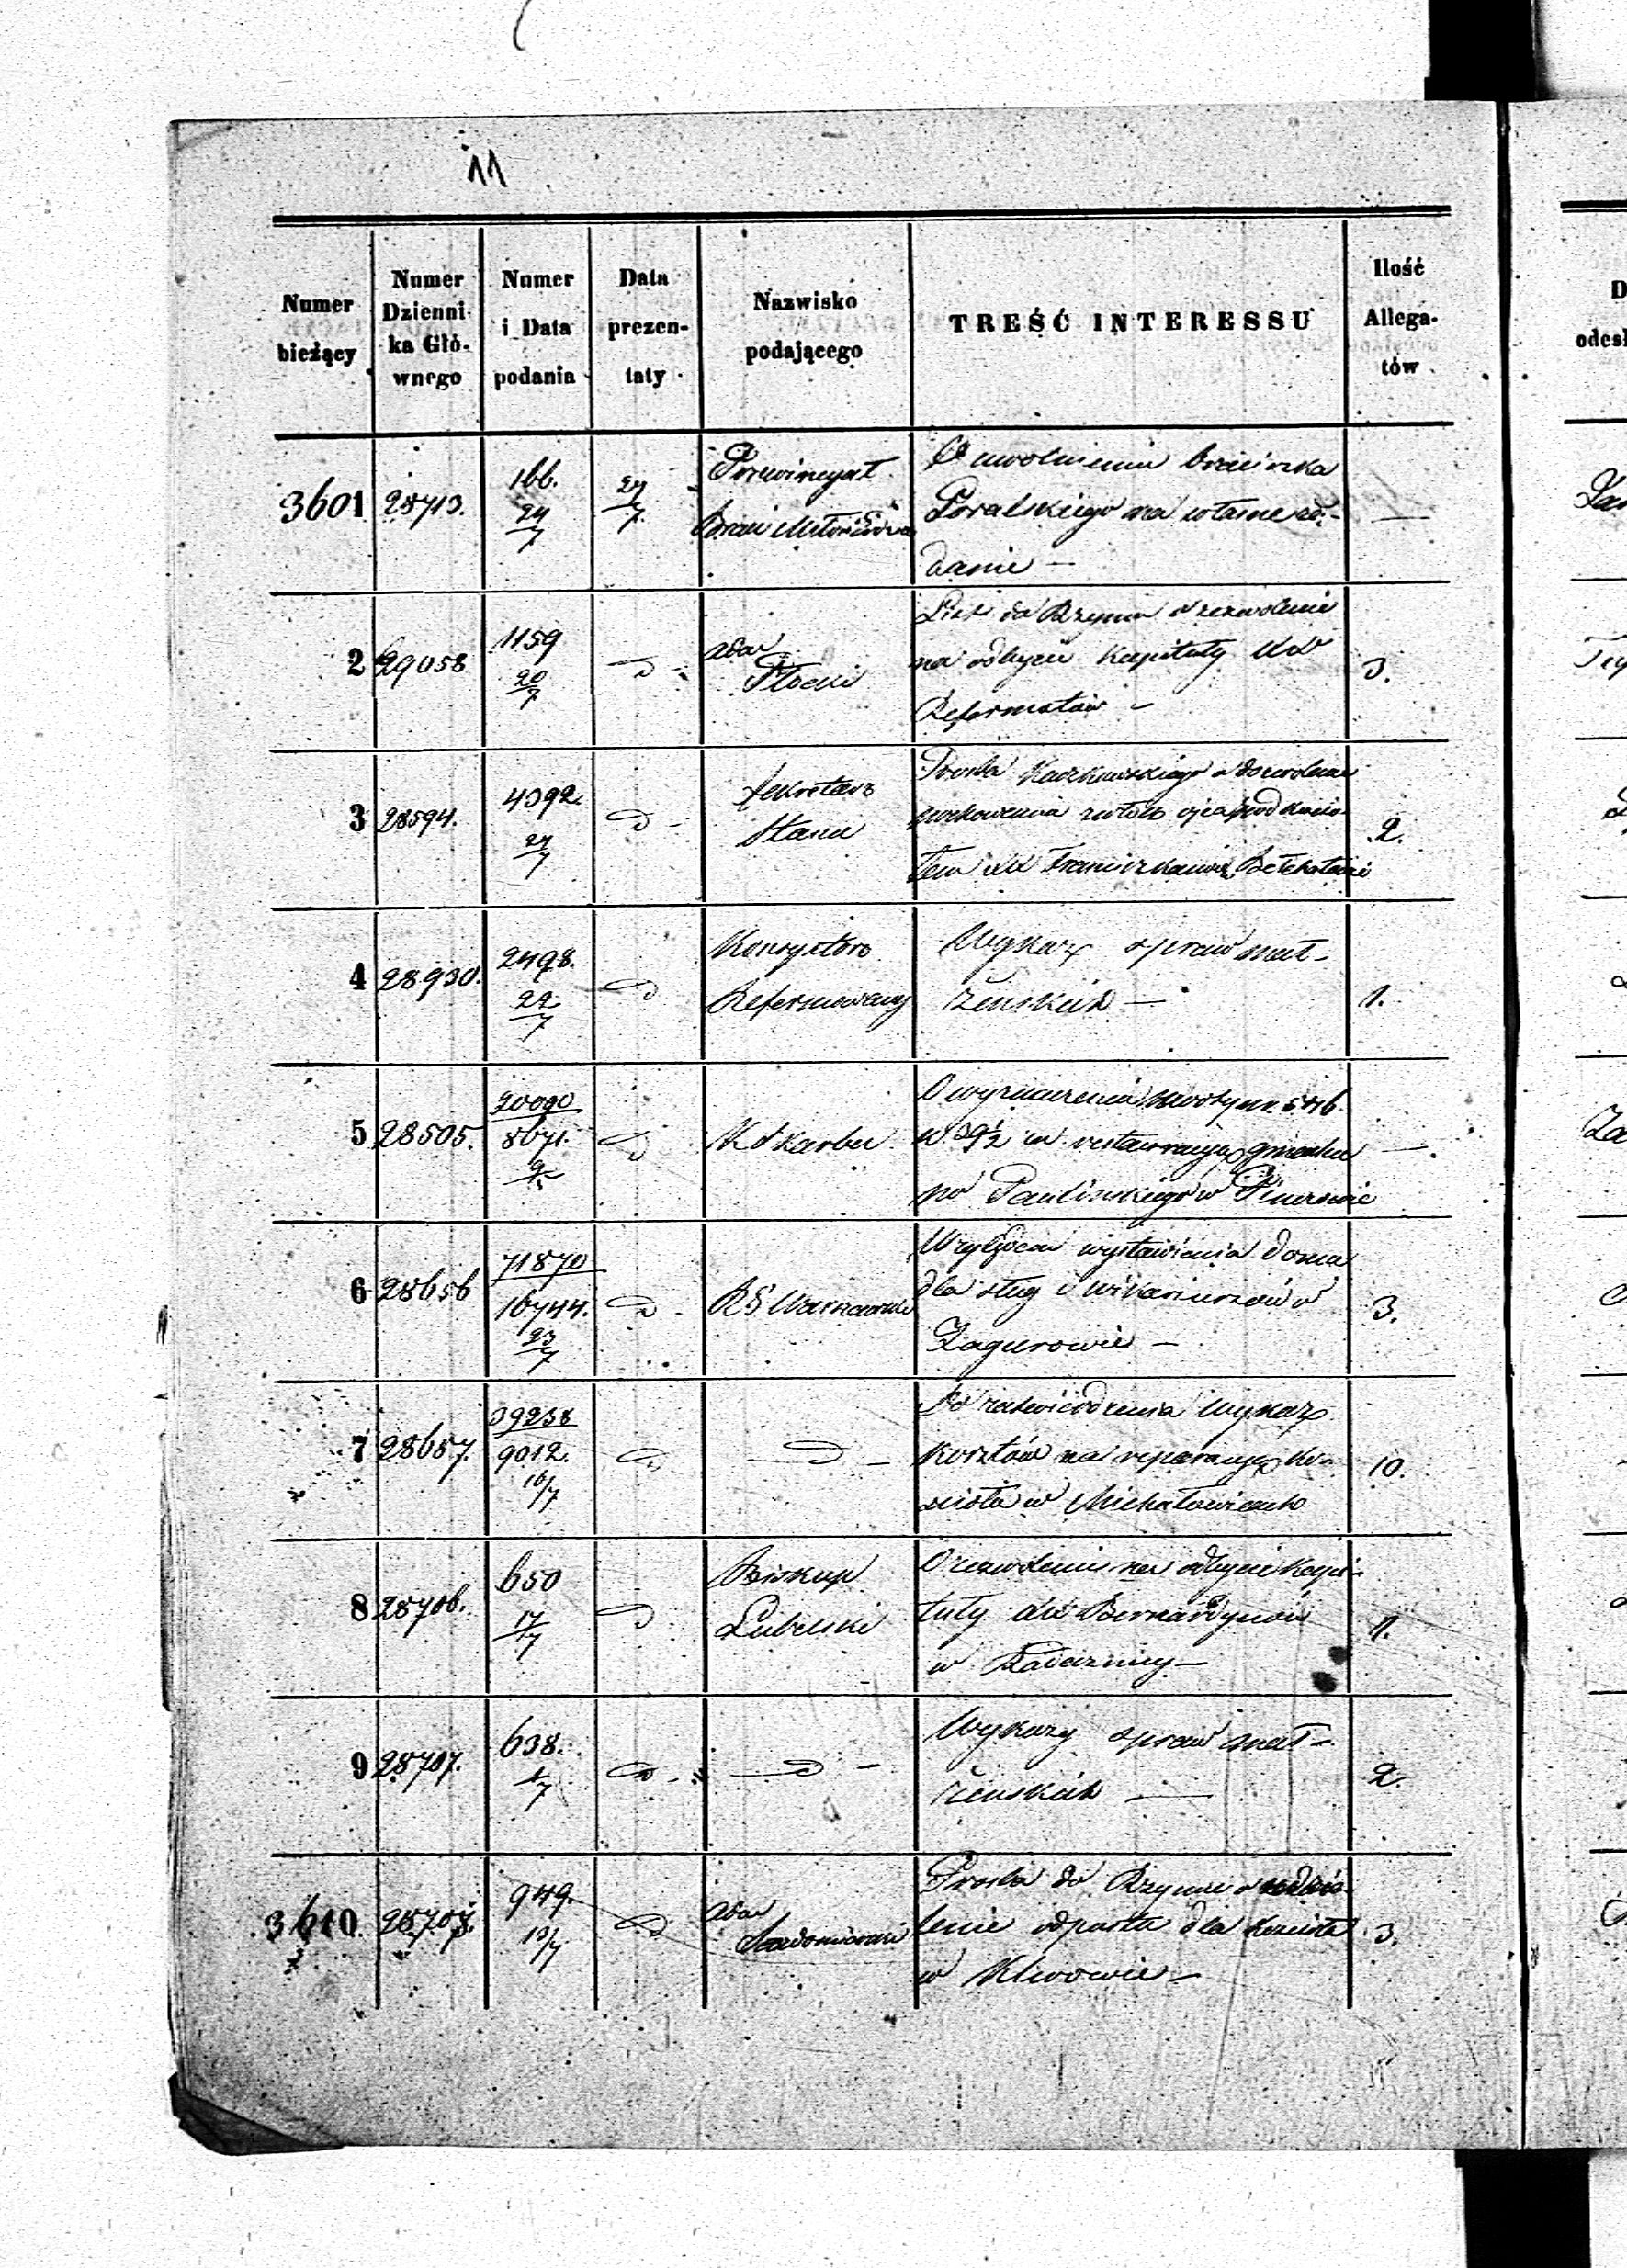 11
Numer bieżący
Numer Dzienni- ka Głó- wnego
Numer i Data podania
Data prezen- taty
Nazwisko podającego
TREŚĆ INTERESSU
Ilość Allega- tów
3601 28713. 166. 24/7 27/7 Prowincyał
Braci
O uwolnienie braciszka
Poralskiego na własne żą-
danie —
2 29058 1159 20/7 Adm Płocki
List do Rzymu o zezwolenie
na odbycie Kapituły
Reformatów —
3.
3 28594. 4392. 24/7 Sekretarz Stanu
Prośba o dozwolenie
pochowania zwłok ojca pod kościo-
łem XX Franciszkanów
2.
4 28930. 2498. 22/7 Konsystorz Reformowany
Wykaz spraw mał-
żeńskich —
1.
5 28505. 20090 8671. K Skarbu
O wyznaczenie kwoty
na restauracyę gmachu
po Paulińskiego w
—
6 28656 71870 16744. 23/7 RG Warszawski
Względem wystawienia domu
dla sług i wikariuszów w
Zagurowie —
3.
7 28687. 39238 9012. 16/7
Do zatwierdzenia Wykaz
kosztów na reparacyę Ko-
ścioła w Michałowicach
10.
8 28706. 650 17/7 Biskup Lubelski
O zezwolenie na odbycie Kapi-
tuły XX Bernardynów
w
1.
9 28707. 638. /7
Wykazy spraw mał-
żeńskich —
2.
3610 949. 13/7 Adm Sandomierski
Prośba do Rzymu o
lenie odpustu dla kościoła
w Klwowie —
3.